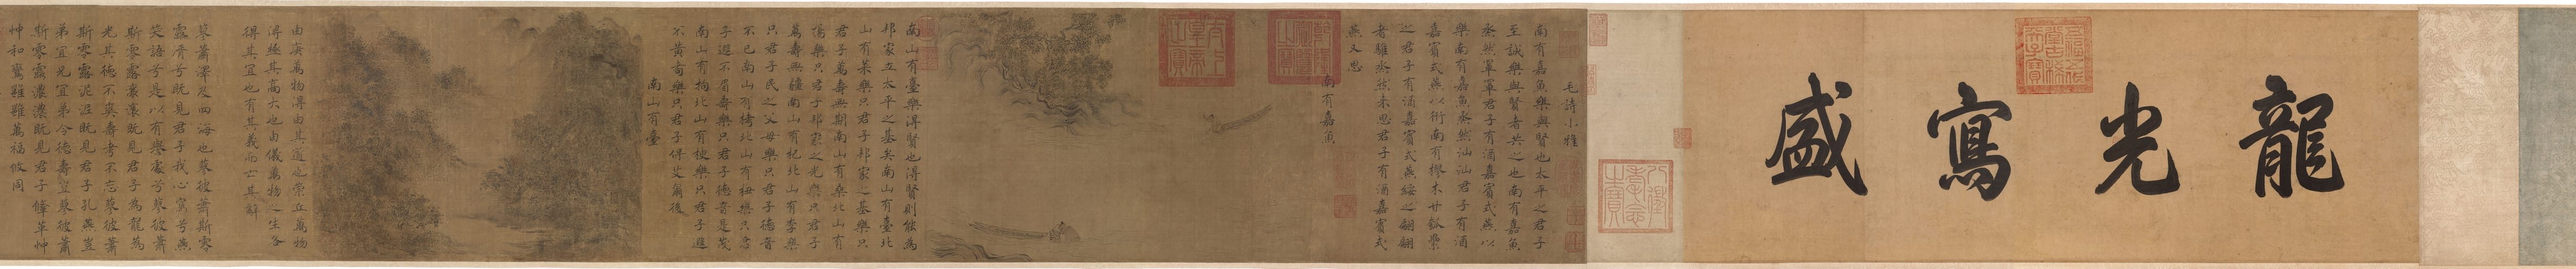 龍光寫盛
毛詩小雅
南有嘉魚樂與賢也太平之君子
至誠樂與賢者共之也南有嘉魚
烝然罩罩君子有酒嘉賓式燕以
樂南有嘉魚烝然汕汕君子有酒
嘉賓式燕以衎南有樛木甘瓠纍
之君子有酒嘉賓式燕綏之翩翩
者鵻烝然來思君子有酒嘉賓式
燕又思
南有嘉魚
南山有臺樂得賢也得賢則能為
邦家立太平之基矣南山有臺北
山有萊樂只君子邦家之基樂只
君子萬壽無期南山有桑北山有
楊樂只君子邦家之光樂只君子
萬壽無疆南山有杞北山有李樂
只君子民之父母樂只君子德音
不已南山有栲北山有杻樂只君
子遐不眉壽樂只君子德音是茂
南山有枸北山有楰樂只君子遐
不黃耇樂只君子保艾爾後
南山有臺
由庚萬物得由其道也崇丘萬物
得極其高大也由儀萬物之生各
得其宜也有其義而亡其辭
蓼蕭澤及四海也蓼彼蕭斯零
露湑兮既見君子我心寫兮燕
笑語兮是以有譽處兮蓼彼蕭
斯零露瀼瀼既見君子為龍為
光其德不爽壽考不忘蓼彼蕭
斯零露泥泥既見君子孔燕豈
弟宜兄宜弟令德壽豈蓼彼蕭
斯零露濃濃既見君子鞗革忡
忡和鸞雝雝萬福攸同